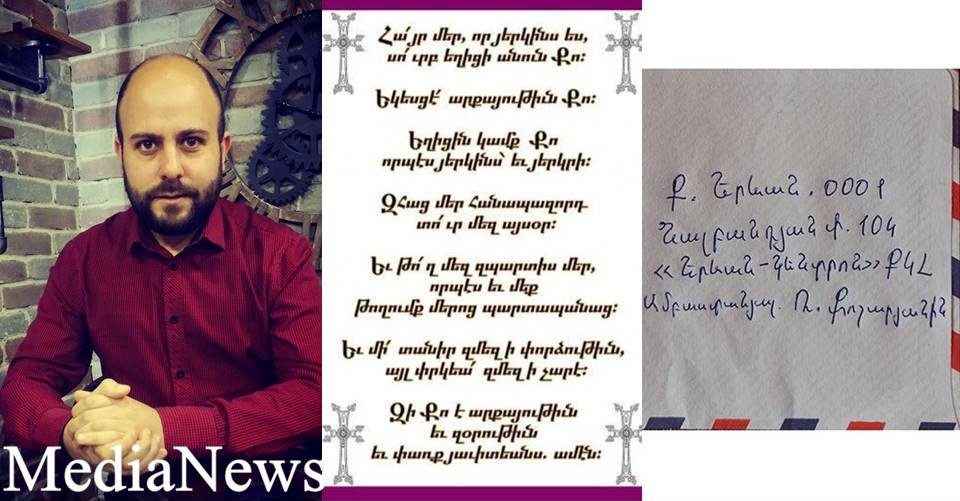 MediaNews
Հա՛յր մեր, որ յերկինս ես,
սո՛ւրբ եղիցի անուն Քո:
Եկեսցէ՛ արքայութիւն Քո:
Եղիցին կամք Քո
որպէս յերկինս՝ եւ յերկրի:
ԶՀաց մեր Հանապազորդ
տո՛ւր մեզ այսօր:
Եւ թո՛ղ մեզ զպարտիս մեր,
որպէս եւ մեք
թողումք մերոց պարտապանաց:
Եւ մի՛ տանիր զմեզ ի փորձութիւն,
այլ փրկեա՛ զմեզ ի չարէ:
Զի Քո է արքայութիւն
եւ զօրութիւն
եւ փառք յաւիտեանս. ամէն:
Ք. Երևան,
Նալբանդյան փ. 104
«Երևան-Կենտրոն» ՔԿՀ
Ամբաստանյալ. Ռ. Քոչարյանին